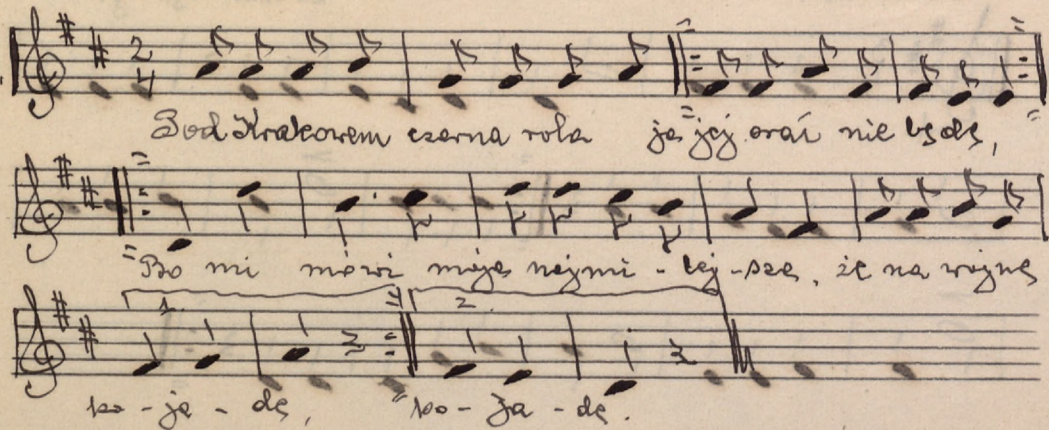 2
4
Pod Krakowem czarna rola ja jej orać nie będę,
Bo mi mówi moja najmi - lej - sza, że na wojnę
1. 2.
po - ja - dę, po - ja - dę.